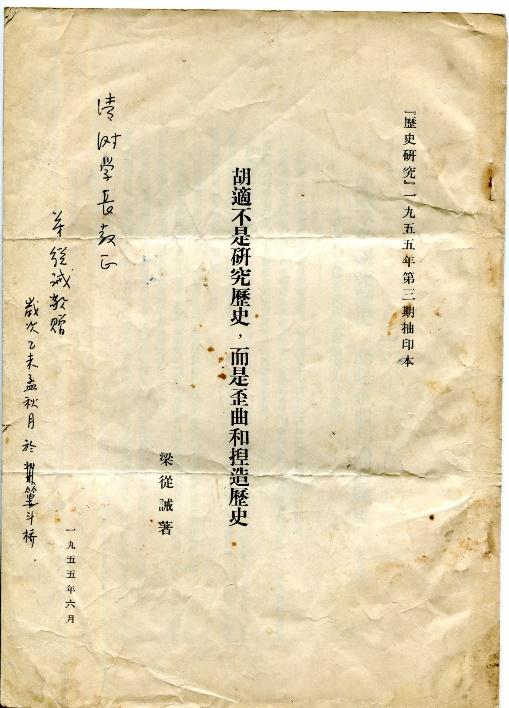 『歷史研究』一九五五年第三期抽印本
胡適不是研究歷史，而是歪曲和捏造歷史
梁從誡著
一九五五年六月
清 學長 正
弟從誡敬贈
歲次乙未孟秋月於 斗橋